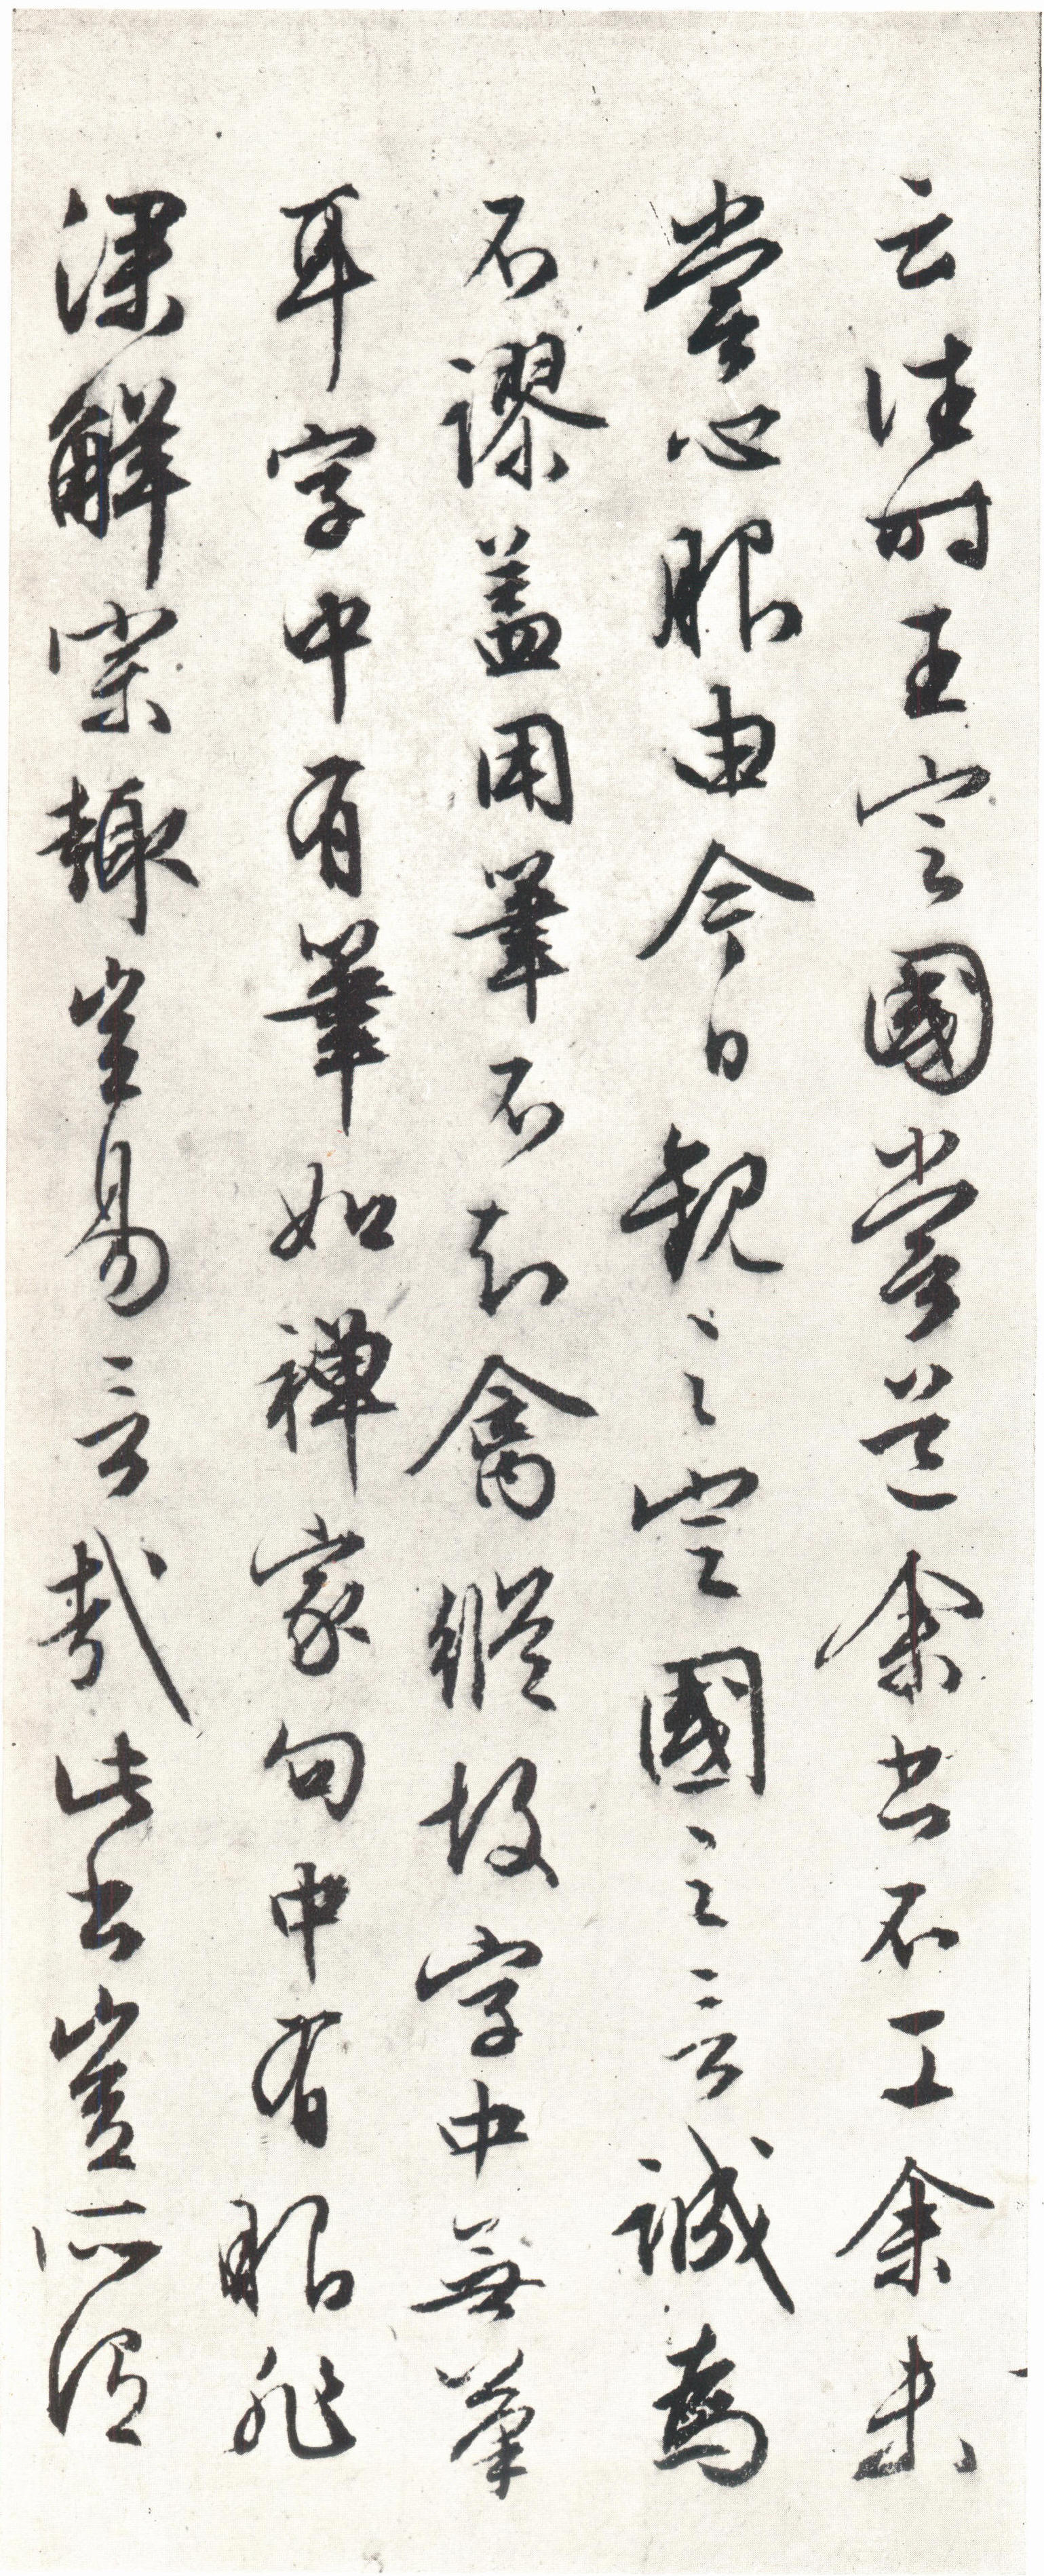 云往時王定國嘗道余書不工余未
嘗心服由今日觀之定國之言誠為
不謬蓋用筆不知禽縱故字中無筆
耳字中有筆如禪家句中有眼非
深解宗趣豈易言哉此書豈所謂